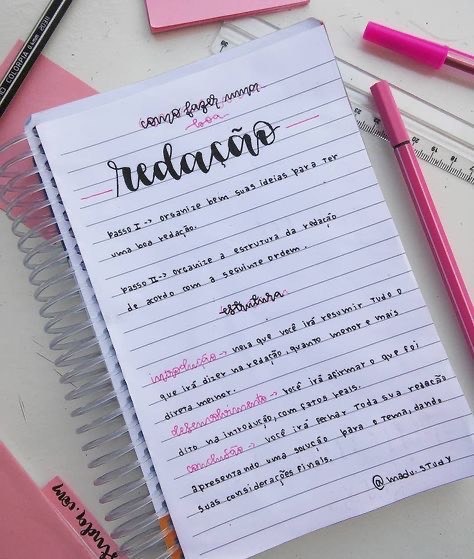 como fazer uma
boa
redação
passo I -> organize bem suas ideias para ter
uma boa redação.
passo II -> organize a estrutura da redação
de acordo com a seguinte ordem.
estrutura
introdução -> nela que você irá resumir tudo o
que irá dizer na redação, quanto menor e mais
direta melhor.
desenvolvimento -> você irá afirmar o que foi
dito na introdução, com fatos reais.
conclusão -> você irá fechar toda sua redação
apresentando uma solução para o tema, dando
suas considerações finais.
@madu.study